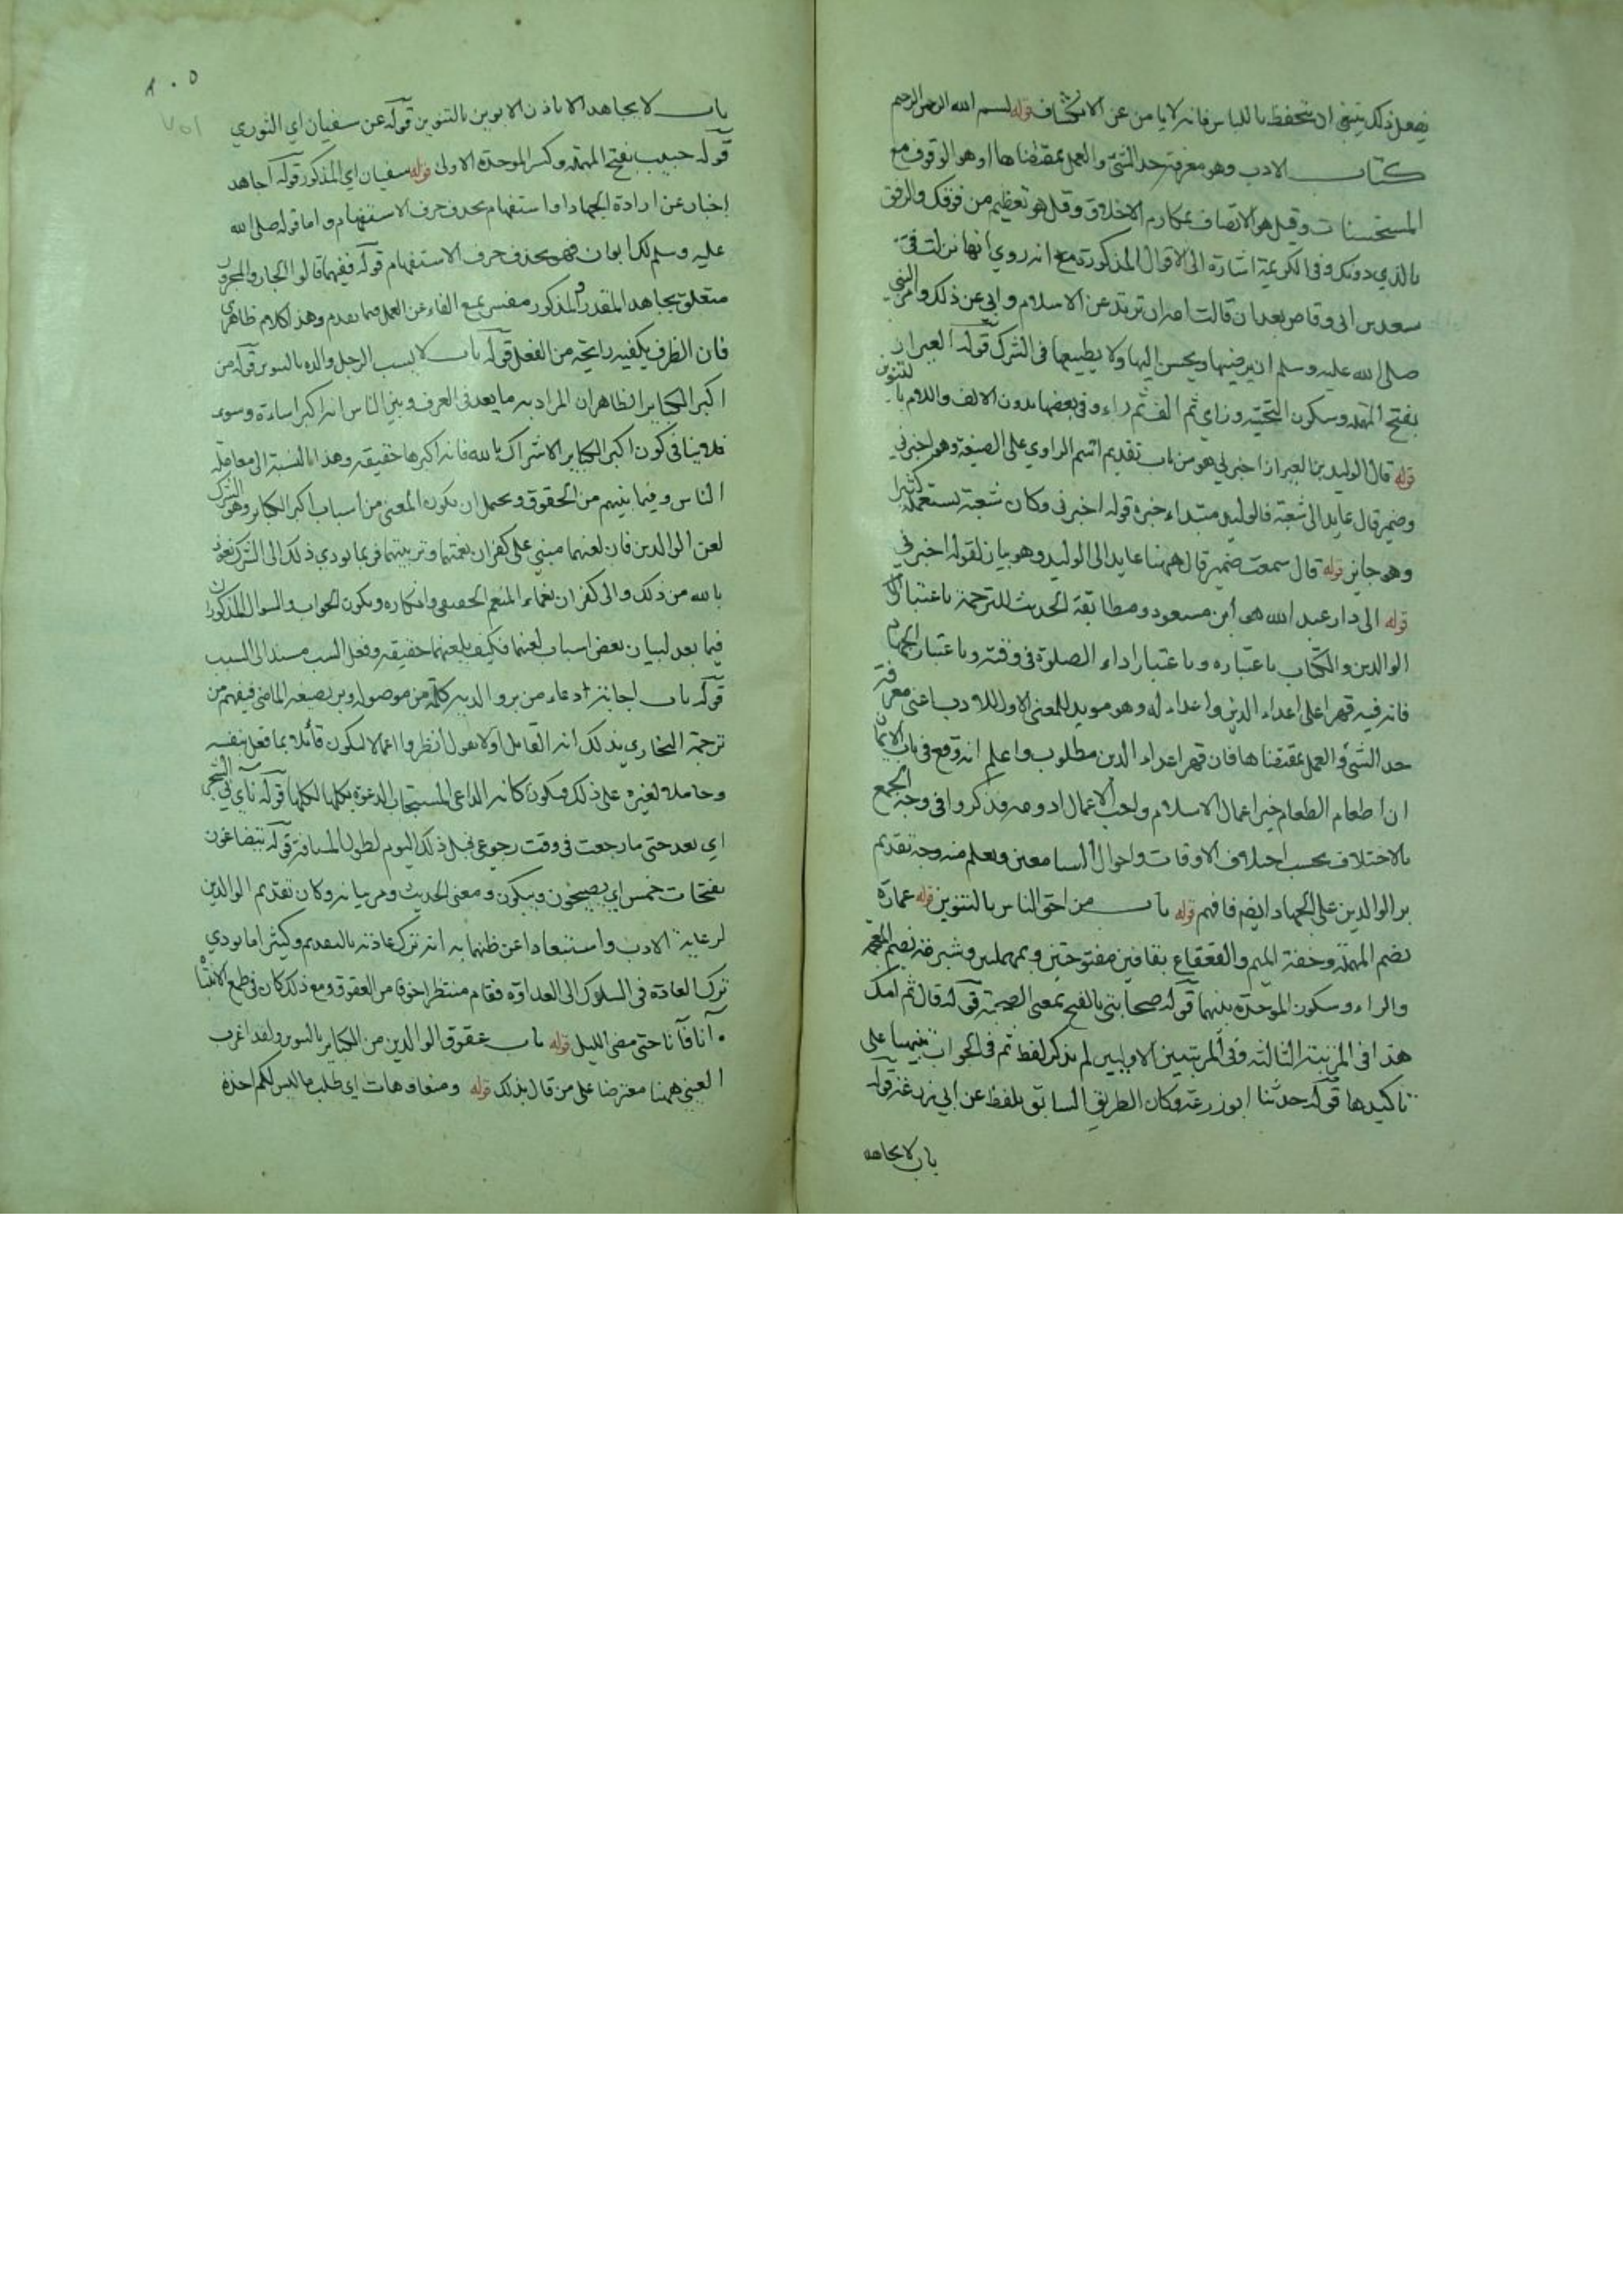 يفعل ذلك ينبغي ان يتحفظ باللباس فانه لا يامن عن الانكشاف قوله بسم الله الرحمن الرحيم
كتاب الادب وهو معرفة حد الشئ والعمل بمقتضاها او هو الوقوف مع
المستحسنات وقيل هو الاتصاف بمكارم الاخلاق وقيل هو تعظيم من فوقك والرفق
بالذي دونك وفي الكريمة اشارة الى الاقوال المذكورة مع انه روي انها نزلت في
سعد بن ابي وقاص بعد ان قالت امه ان ترتد عن الاسلام وابى عن ذلك وامر النبي
صلى الله عليه وسلم ان يرضيها ويحسن اليها ولا يطيعها في الشرك قوله العيزار
بفتح المهملة وسكون التحتية وزاي ثم الف ثم راء وفي بعضها بدون الالف واللام بالتنوين
قوله قال الوليد بن العيزار اخبرني هو من باب تقديم اسم الراوي على الصيغة وهو اخبرني
وضمير قال عايد الى شعبة فالوليد مبتداء خبره قوله اخبرني وكان شعبة يستعمله كثيرا
وهو جايز قوله قال سمعت ضمير قال ههنا عايد الى الوليد وهو بيان لقوله اخبرني
قوله الى دار عبد الله هو ابن مسعود ومطابقة الحديث للترجمة باعتبار
الوالدين والكتاب باعتباره وباعتبار اداء الصلوة في وقته وباعتبار الجهاد
فانه فيه قهرا على اعداء الدين واعداء له وهو مويد للمعنى الاول للادب اعني معرفة
حد الشئ والعمل بمقتضاها فان قهر اعداء الدين مطلوب واعلم انه وقع في باب الايمان
ان اطعام الطعام خير اعمال الاسلام واحب الاعمال ادومه فذكروا في وجه الجمع
بالاختلاف بحسب اختلاف الاوقات واحوال السامعين ويعلم منه وجه تقديم
بر الوالدين على الجهاد ايضا فافهم قوله باب من احق الناس بالتنوين قوله عمارة
بضم المهملة وخفة الميم والقعقاع بقافين مفتوحتين وبمهملتين وشبرمة بضم المعجمة
والراء وسكون الموحدة بينهما قوله صحابتي بالفتح بمعنى الصحبة قوله قال ثم امك
هذا في المرتبة الثالثة وفي المرتبتين الاوليين لم يذكر لفظ ثم في الجواب تنبيها على
تاكيدها قوله حدثنا ابو زرعة وكان الطريق السابق بلفظ عن ابي زرعة قوله
باب لا يجاهد
٨٠٥
٧٥١
باب لا يجاهد الا باذن الابوين بالتنوين قوله عن سفيان اي الثوري
قوله حبيب بفتح المهملة وكسر الموحدة الاولى قوله سفيان اي المذكور قوله اجاهد
اخبار عن ارادة الجهاد او استفهام بحذف حرف الاستفهام واما قوله صلى الله
عليه وسلم لك ابوان فهو بحذف حرف الاستفهام قوله ففيهما قالوا الجار والمجرور
متعلق بجاهد المقدر والمذكور مفسر بمنع الفاء عن العمل فيما تقدم وهذا كلام ظاهري
فان الظرف يكفيه رايحة من الفعل قوله باب لا يسب الرجل والده بالتنوين قوله من
اكبر الكباير الظاهر ان المراد به ما يعد في العرف وبين الناس انه اكبر اساءة وسوء
فلا ينافي كون اكبر الكباير الاشراك بالله فانه اكبرها حقيقة وهذا بالنسبة الى معاملة
الناس وفيما بينهم من الحقوق ويحتمل ان يكون المعنى من اسباب اكبر الكباير وهو الشرك
لعن الوالدين فان لعنهما مبني على كفران نعمتهما وتربيتهما فربما يودي ذلك الى الشرك نعوذ
بالله من ذلك والى كفران نعماء المنعم الحقيقي وانكاره ويكون الجواب والسوال المذكوران
فيما بعد لبيان بعض اسباب لعنهما فكيف بلعنهما حقيقة وفعل السب مسند الى السبب
قوله باب اجابة دعاء من بر والديه كلمة من موصوله وبر بصيغة الماضي فيفهم من
ترجمة البخاري بذلك انه القامل اولا يقول انظروا اعمالا ليكون قائلا بما فعل بنفسه
وحاملا لغيره على ذلك فيكون كانه الداعي المستجاب الدعوة بكلها لكلها قوله نأى بي الشجر
اي بعد حتى ما رجعت في وقت رجوعي قبل ذلك اليوم لطول المسافة قوله يتضاغون
بفتحات خمس اي يصيحون ويبكون ومعنى الحديث ومر بيانه وكان تقديم الوالدين
لرعاية الادب واستبعادا عن ظنهما به انه ترك عادته بالتقديم وكثيرا ما يودي
ترك العادة في السلوك الى العداوة فقام منتظرا خوفا من العقوق ومع ذلك كان في طمع الانتباه
آنا فآنا حتى مضى الليل قوله باب عقوق الوالدين من الكباير بالتنوين ولقد اغرب
العيني ههنا معترضا على من قال بذلك قوله ومنعا وهات اي طلب ما ليس لكم اخذه